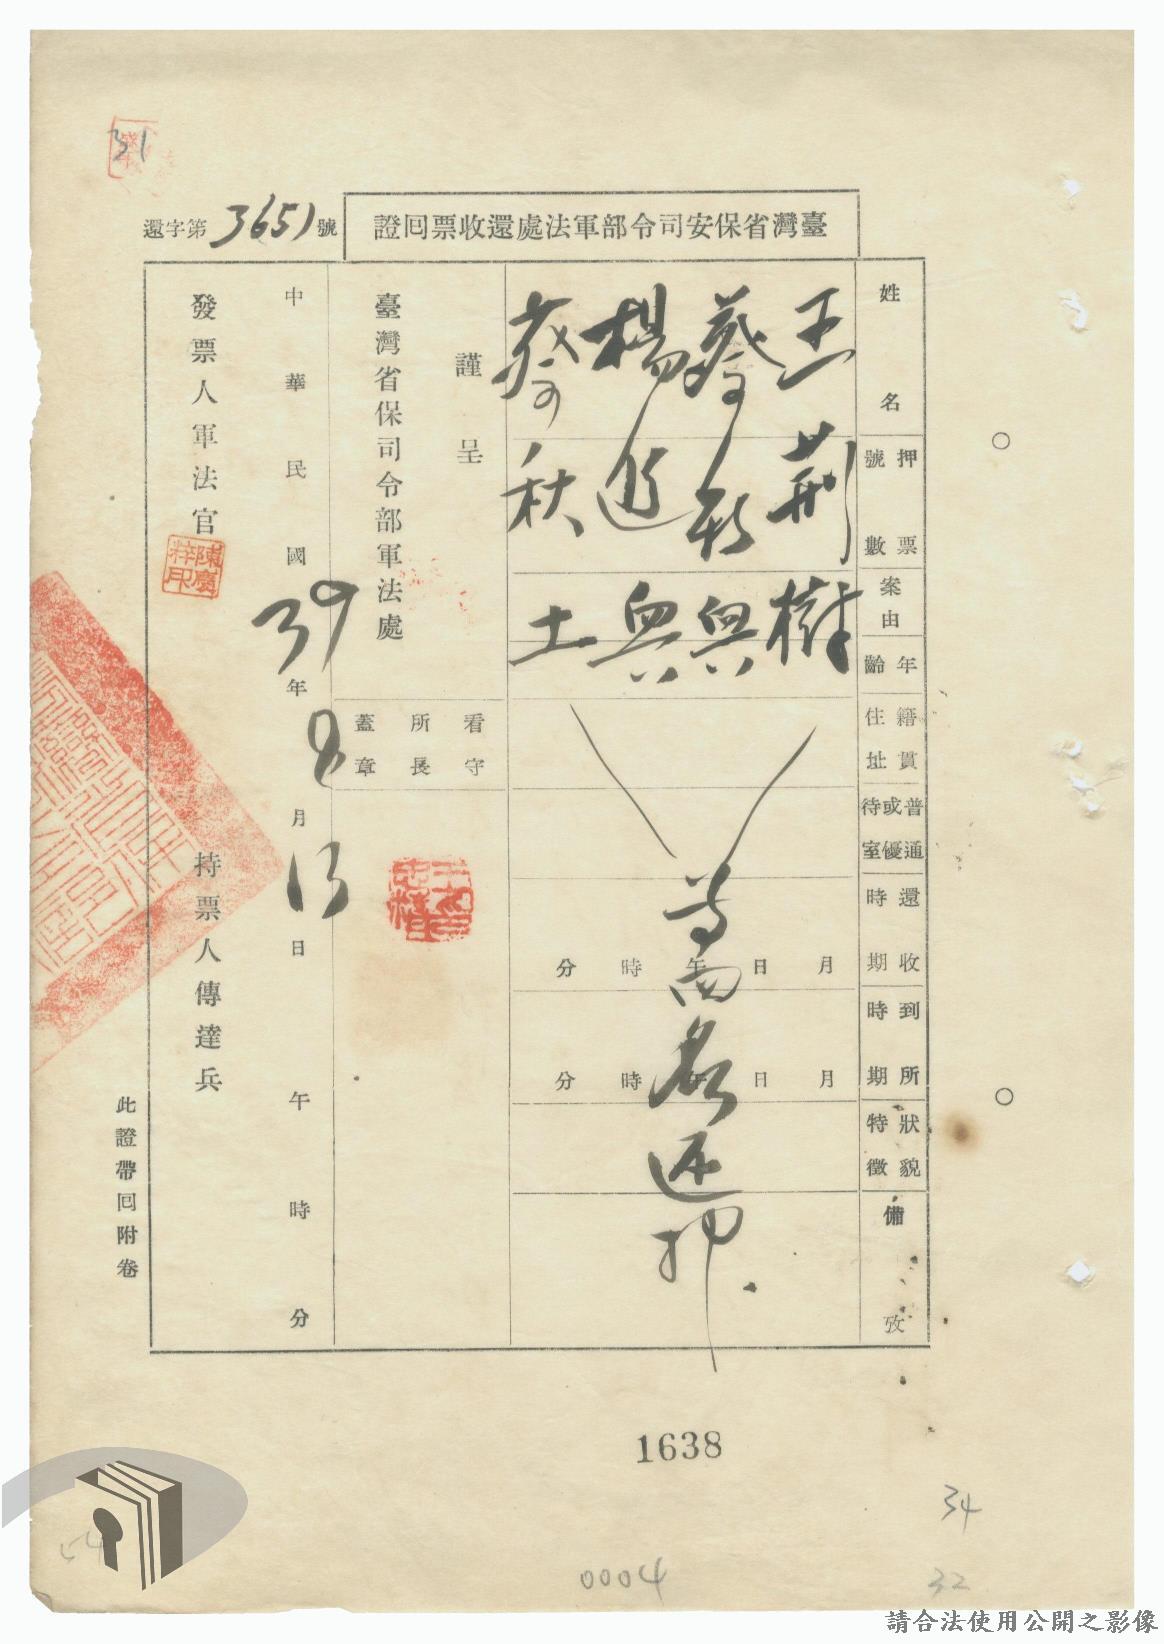 31
臺灣省保安司令部軍法處還收票回證
還字第3651號
姓名
押票號數
案由
年齡
籍貫住址
普通或優待室
還收時期
到所時期
狀貌特徵
備攷
王荆樹
蔡新興
楊進興
蔡秋土
等肆名還押
月日午時分
月日午時分
謹呈
臺灣省保司令部軍法處
看守所長蓋章
中華民國39年8月13日午時分
發票人軍法官
陳慶粹印
持票人傳達兵
此證帶回附卷
1638
34
54
0004
32
請合法使用公開之影像